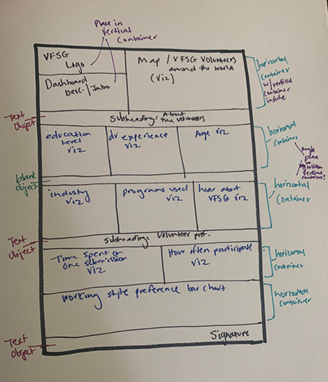 Place in
vertical
container
VFSG
Logo
Dashboard
desc./Intro
Map / VFSG Volunteers
around the world
(viz)
horizontal
container
w/ vertical
container
inside
Text
Object
Subheading: About
the volunteers
education
level
viz
dv experience
viz
Age viz
horizontal
container
place
in
vertical
container?
blank
object
industry
viz
programs used
viz
hear about
VFSG viz
horizontal
container
Text
Object
Subheading: Volunteer pref.
Time spent on
one submission
viz
How often participate
viz
horizontal
container
working style preference bar chart
horizontal
container
Text
Object
Signature